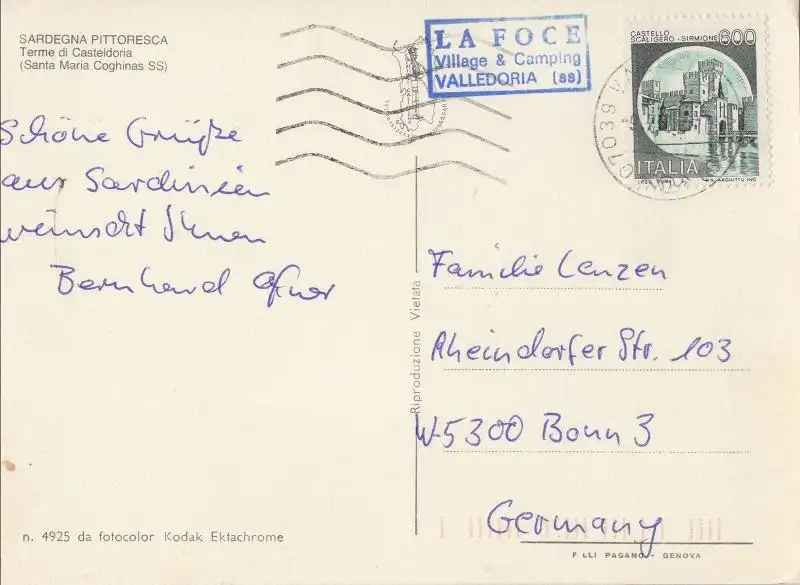 SARDEGNA PITTORESCA
Terme di Casteldoria
(Santa Maria Coghinas SS)
LA FOCE
Village & Camping
VALLEDORIA (ss)
CASTELLO
SCALIGERO - SIRMIONE 600
ITALIA
07039
Schöne Grüße
aus Sardinien
wünscht Ihnen
Bernhard
Familie Lenzen
Rheindorfer Str. 103
W-5300 Bonn 3
Germany
Riproduzione Vietata
n. 4925 da fotocolor Kodak Ektachrome
F.LLI PAGANO - GENOVA